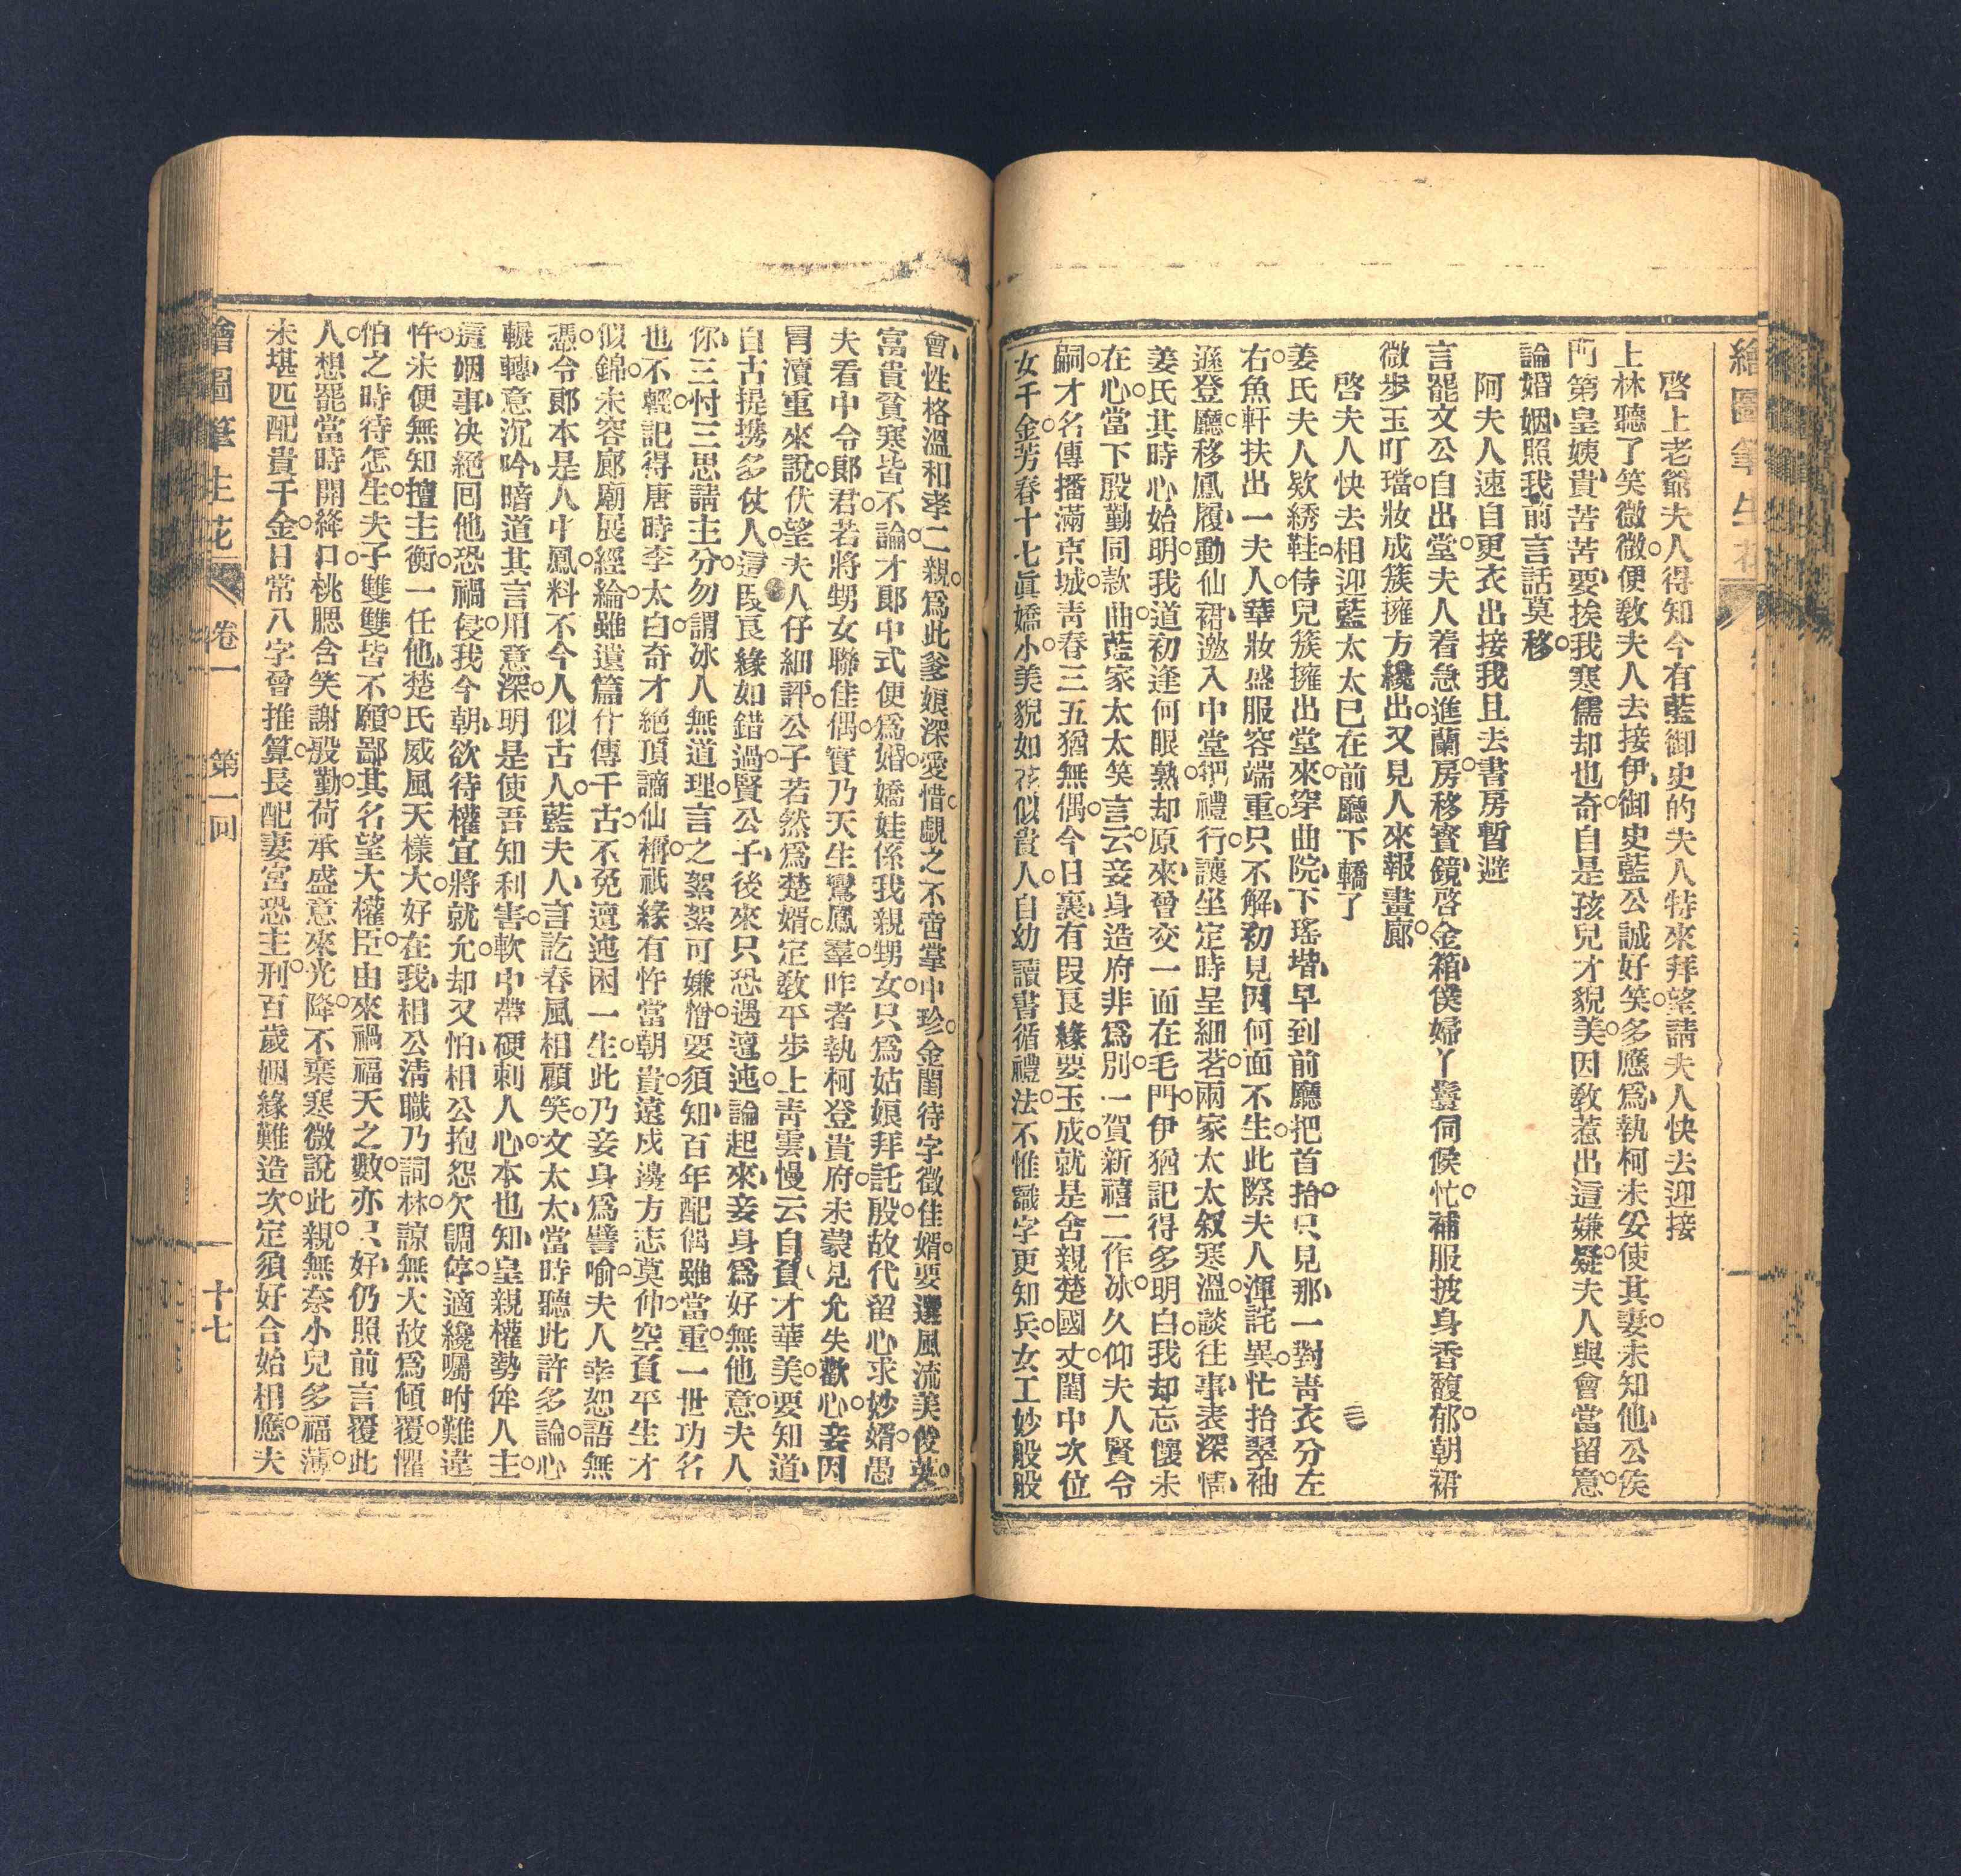 繪圖筆生花
啓上老爺夫人得知今有藍御史的夫人特來拜望請夫人快去迎接
上林聽了笑微微。便教夫人去接伊、御史藍公誠好笑。多應爲、執柯未妥使其妻。未知他、公侯
門第皇姨、貴苦苦要、挨我寒儒却也奇。自是孩兒才貌美。因教惹出這嫌疑。夫人與會當留意。
論婚姻、照我前言話莫移。
阿夫人速自更衣出接我且去書房暫避
言罷文公自出堂。夫人着急進蘭房。移寳鏡、啓金箱、僕婦丫鬟伺候忙。補服披身香馥郁。朝裙
微步玉叮璫。妝成簇擁方纔出。又見人來報畫廊。
啓夫人快去相迎藍太太已在前廳下轎了
姜氏夫人欵綉鞋。侍兒簇擁出堂來。穿曲院、下瑤堦、早到前廳把首抬。只見那、一對青衣分左
右。魚軒扶出一夫人。華妝盛服容端重。只不解、初見因何面不生。此際夫人渾詫異。忙抬翠袖
遜登廳。移鳳履、動仙裙、邀入中堂把禮行。讓坐定時呈細茗。兩家太太叙寒溫。談往事、表深情、
姜氏其時心始明。我道初逢何眼熟、却原來、曾交一面在毛門。伊猶記得多明白。我却忘懷未
在心。當下殷勤同款曲。藍家太太笑言云。妾身造府非爲別。一賀新禧二作冰。久仰夫人賢令
嗣。才名傳播滿京城。青春三五猶無偶。今日裏、有段良緣要玉成。就是舍親楚國丈。閨中次位
女千金。芳春十七眞嬌小。美貌如花似貴人。自幼讀書循禮法。不惟識字更知兵。女工妙般般
會、性格溫和孝二親。爲此爹娘深愛惜。覷之不啻掌中珍。金閨待字徵佳婿。要選風流美俊英。
富貴貧寒皆不論。才郎中式便爲婚。嬌娃係我親甥女。只爲姑娘拜託殷。故代留心求妙婿。愚
夫看中令郎君。若將甥女聯佳偶。實乃天生鸞鳳羣。昨者執柯登貴府。未蒙見允失歡心。妾因
冒瀆重來說。伏望夫人仔細評。公子若然爲楚婿。定教平步上青雲。慢云自負、才華美。要知道、
自古提携多仗人。這段良緣如錯過。賢公子、後來只恐遇邅迍。論起來、妾身爲好無他意。夫人
你、三忖三思請主分。勿謂冰人無道理。言之絮絮可嫌憎。要須知、百年配偶雖當重。一世功名
也不輕。記得唐時李太白。奇才絕頂謫仙稱。祇緣有忤當朝貴。遠戍邊方志莫伸。空負平生才
似錦。未容廊廟展經綸。雖遺篇什傳千古。不免邅迍困一生。此乃妾身爲譬喻。夫人幸恕語無
憑。令郎本是人中鳳。料不今人似古人。藍夫人、言訖春風相顧笑。文太太、當時聽此許多論。心
輾轉、意沉吟、暗道其言用意深。明是使吾知利害。軟中帶硬刺人心。本也知、皇親權勢侔人主。
這姻事、决絕囘他恐禍侵。我今朝、欲待權宜將就允。却又怕、相公抱怨欠調停。適纔囑咐難違
忤。未便無知擅主衡。一任他、楚氏威風天樣大。好在我、相公清職乃詞林。諒無大故爲傾覆。懼
怕之時待怎生。夫子雙雙皆不願。鄙其名望大權臣。由來禍福天之數。亦只好、仍照前言覆此
人。想罷當時開絳口。桃腮含笑謝殷勤。荷承盛意來光降。不棄寒微說此親。無奈小兒多福薄。
未堪匹配貴千金。日常八字曾推算。長配妻宮恐主刑。百歲姻緣難造次。定須好合始相應。夫
繪圖筆生花 卷一 第一回 十七